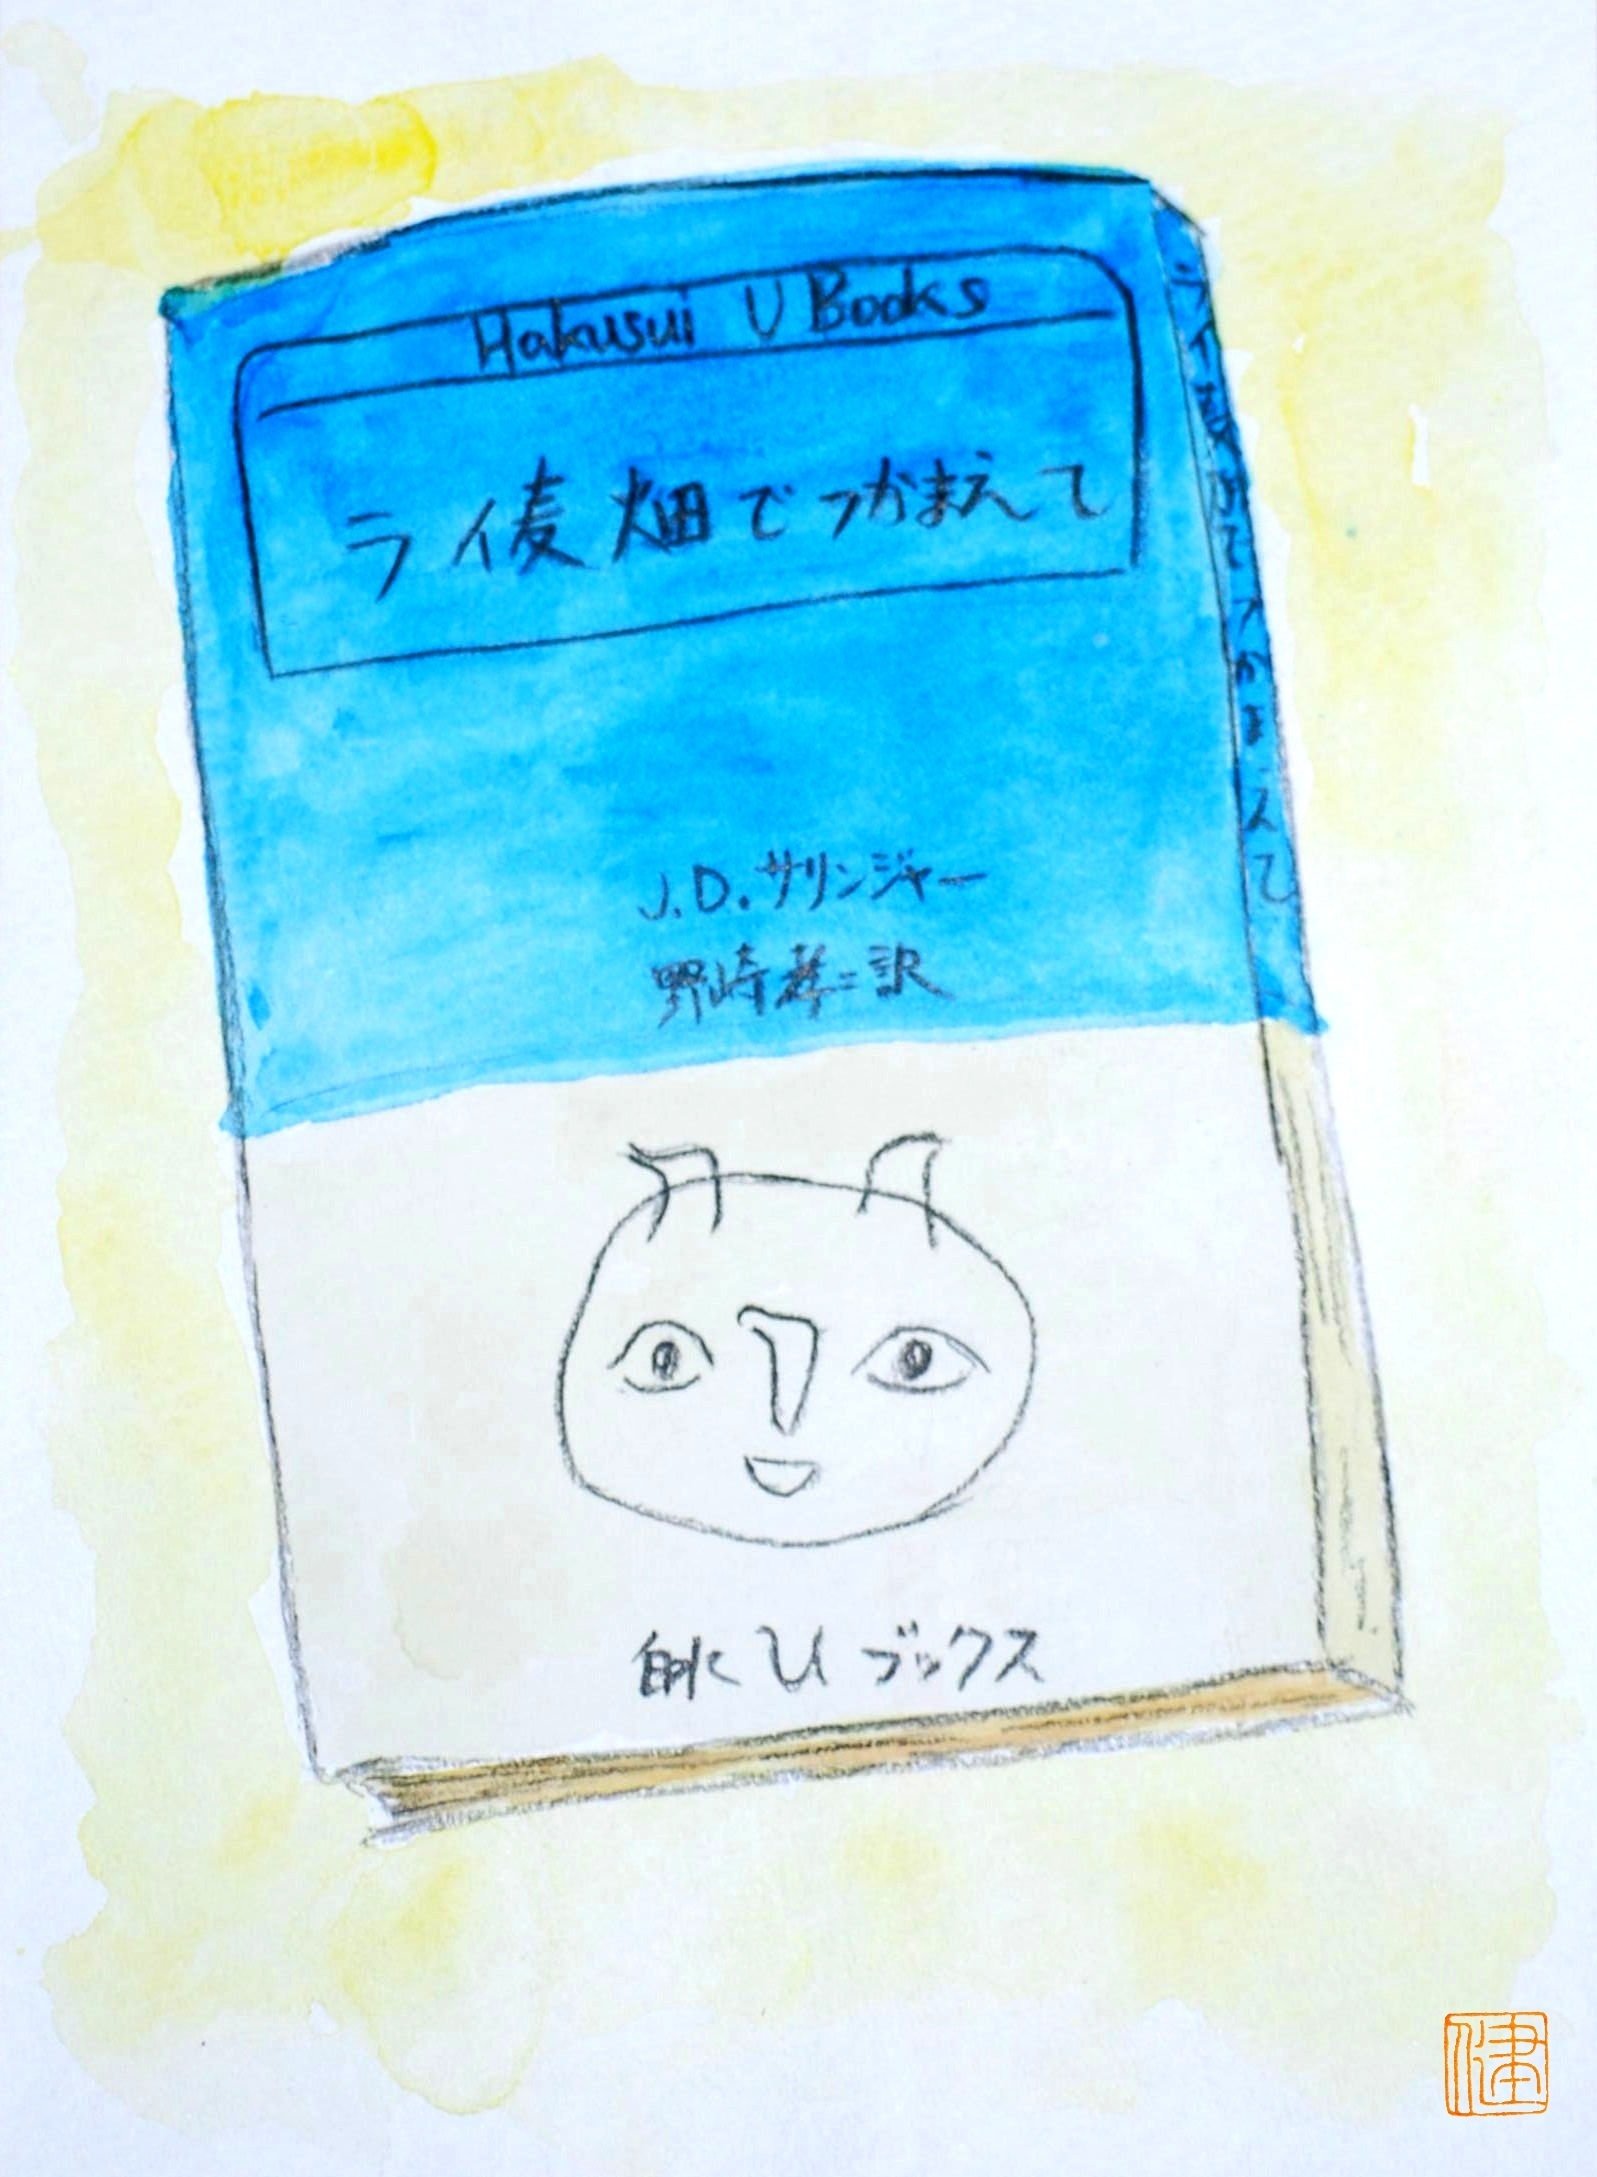 Hakusui U Books
ライ麦畑でつかまえて
J.D.サリンジャー
野崎孝=訳
白水Uブックス
ライ麦畑でつかまえて
健